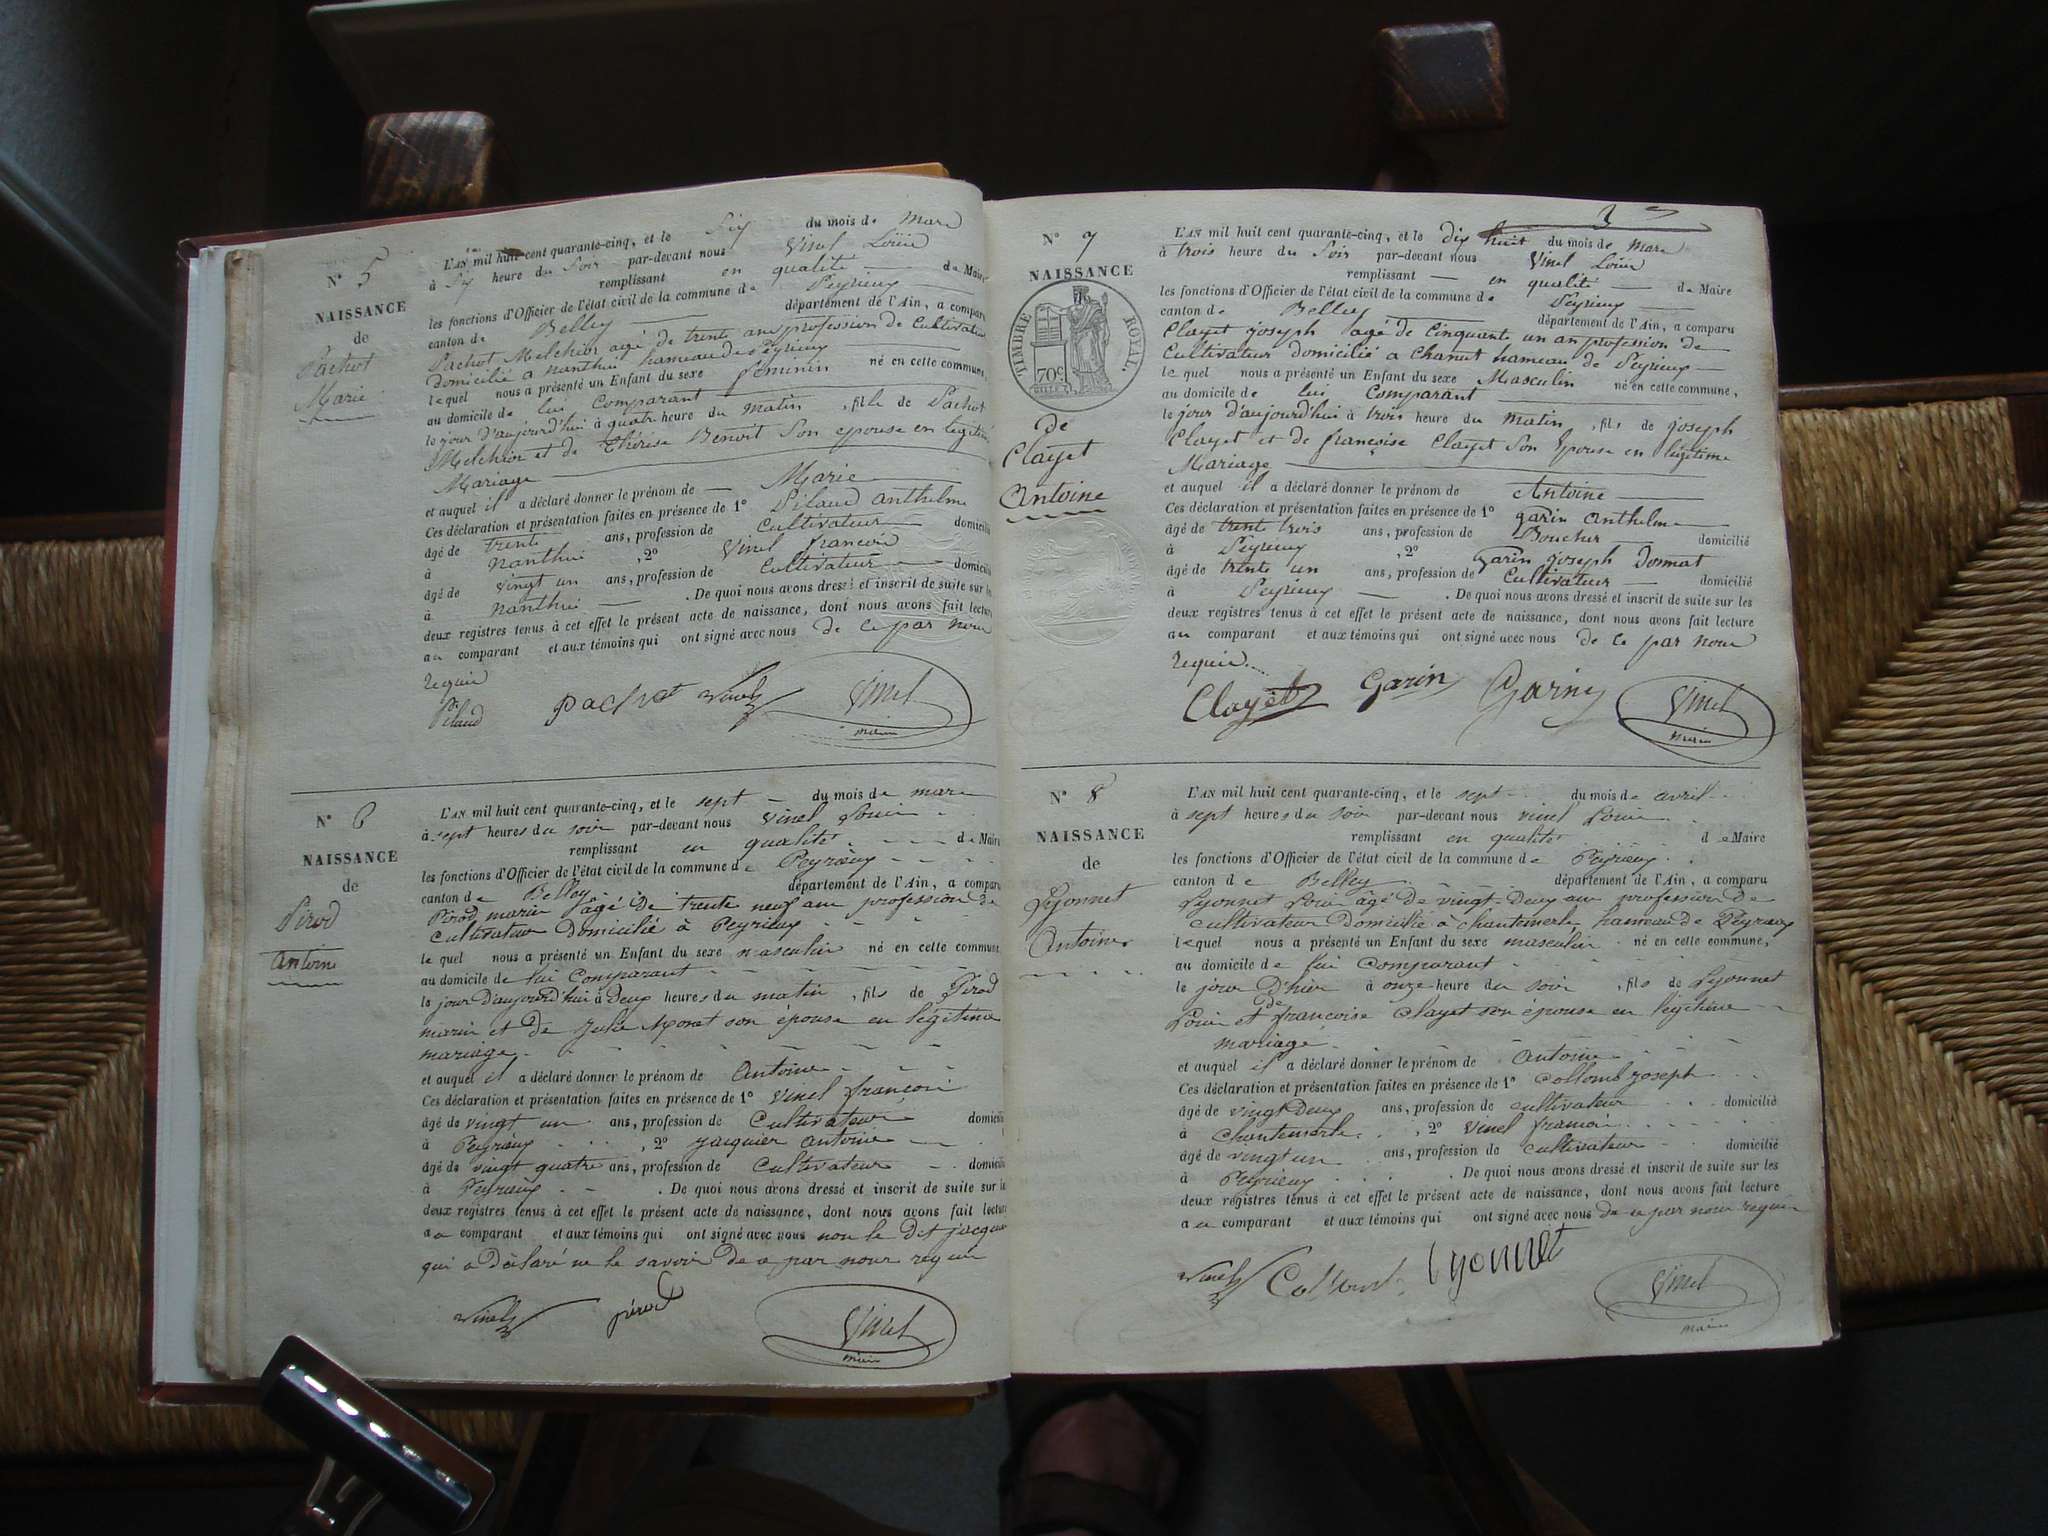 N° 5
NAISSANCE
de
Pachot
Marie
L'AN mil huit cent quarante-cinq, et le Six du mois de mars
à Six heure du Soir par-devant nous Vinel Loüis
remplissant en qualité de Maire
les fonctions d'Officier de l'état civil de la commune de Peyrieux
canton de Belley département de l'Ain, a comparu
Pachot Melchior agé de trente ans profession de Cultivateur
domicilié a nanthui hameau de Peyrieux
lequel nous a présenté un Enfant du sexe féminin né en cette commune,
au domicile de lui Comparant
le jour d'aujourd'hui à quatre heure du matin, fille de Pachot
Melchior et de Thérèse Benoit Son epouse en legitime
Mariage
et auquel il a déclaré donner le prénom de Marie
Ces déclaration et présentation faites en présence de 1° Pilaud anthelme
âgé de trente ans, profession de Cultivateur domicilié
à nanthui, 2° Vinel francois
âgé de vingt un ans, profession de Cultivateur domicilié
à nanthui. De quoi nous avons dressé et inscrit de suite sur les
deux registres tenus à cet effet le présent acte de naissance, dont nous avons fait lecture
au comparant et aux témoins qui ont signé avec nous de ce par nous
requis
Pilaud Pachot Vinel Vinel
maire
N° 6
NAISSANCE
de
Pirod
antoine
L'AN mil huit cent quarante-cinq, et le sept du mois de mars
à sept heures du soir par-devant nous Vinel Louis
remplissant en qualité de Maire
les fonctions d'Officier de l'état civil de la commune de Peyrieux
canton de Belley département de l'Ain, a comparu
Pirod marin âgé de trente neuf ans profession de
cultivateur domicilié à Peyrieux
lequel nous a présenté un Enfant du sexe masculin né en cette commune
au domicile de lui Comparant
le jour d'aujourd'hui à deux heures du matin, fils de Pirod
marin et de Julie Moret son épouse en légitime
mariage
et auquel il a déclaré donner le prénom de antoine
Ces déclaration et présentation faites en présence de 1° Vinel françois
âgé de vingt un ans, profession de Cultivateur domicilié
à Peyrieux, 2° Jacquier antoine
âgé de vingt quatre ans, profession de Cultivateur domicilié
à Peyrieux. De quoi nous avons dressé et inscrit de suite sur les
deux registres tenus à cet effet le présent acte de naissance, dont nous avons fait lecture
au comparant et aux témoins qui ont signé avec nous non le dit jacquier
qui a déclaré ne le savoir de ce par nous requis
Vinel pirod Vinel
maire
3
N° 7
NAISSANCE
TIMBRE ROYAL
70c
de
Clayet
antoine
L'AN mil huit cent quarante-cinq, et le dix huit du mois de mars
à trois heure du Soir par-devant nous Vinel Loüis
remplissant en qualité de Maire
les fonctions d'Officier de l'état civil de la commune de Peyrieux
canton de Belley département de l'Ain, a comparu
Clayet joseph agé de Cinquante un an profession de
Cultivateur domicilié a Chanut hameau de Peyrieux
lequel nous a présenté un Enfant du sexe Masculin né en cette commune,
au domicile de lui Comparant
le jour d'aujourd'hui à trois heure du matin, fils de joseph
Clayet et de françoise Clayet Son Epouse en légitime
Mariage
et auquel il a déclaré donner le prénom de Antoine
Ces déclaration et présentation faites en présence de 1° garin anthelme
âgé de trente trois ans, profession de Boucher domicilié
à Peyrieux, 2° Garin joseph Donnat
âgé de trente un ans, profession de Cultivateur domicilié
à Peyrieux. De quoi nous avons dressé et inscrit de suite sur les
deux registres tenus à cet effet le présent acte de naissance, dont nous avons fait lecture
au comparant et aux témoins qui ont signé avec nous de ce par nous
requis
Clayet Garin Garin Vinel
maire
N° 8
NAISSANCE
de
Lyonnet
antoine
L'AN mil huit cent quarante-cinq, et le sept du mois de avril
à sept heures du soir par-devant nous vinel Louis
remplissant en qualité de Maire
les fonctions d'Officier de l'état civil de la commune de Peyrieux
canton de Belley département de l'Ain, a comparu
Lyonnet Louis âgé de vingt-deux ans profession de
cultivateur domicilié à chantemerle hameau de Peyrieux
lequel nous a présenté un Enfant du sexe masculin né en cette commune,
au domicile de lui comparant
le jour d'hier à onze heure du soir, fils de Lyonnet
Louis et de françoise Clayet son épouse en légitime
mariage
et auquel il a déclaré donner le prénom de antoine
Ces déclaration et présentation faites en présence de 1° Collomb joseph
âgé de vingt deux ans, profession de cultivateur domicilié
à chantemerle, 2° vinel francois
âgé de vingt un ans, profession de cultivateur domicilié
à Peyrieux. De quoi nous avons dressé et inscrit de suite sur les
deux registres tenus à cet effet le présent acte de naissance, dont nous avons fait lecture
au comparant et aux témoins qui ont signé avec nous de ce par nous requis
Vinel Collomb lyonnet Vinel
maire